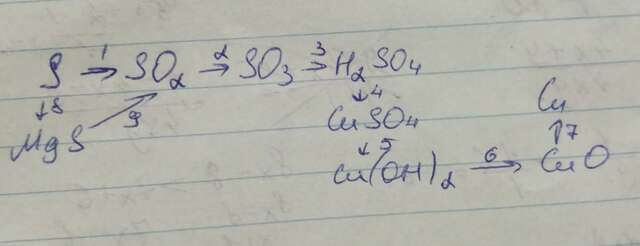 S →1 SO₂ →2 SO₃ →3 H₂SO₄
↓8 ↗9 ↓4 Cu
MgS CuSO₄ ↑7
↓5
Cu(OH)₂ →6 CuO